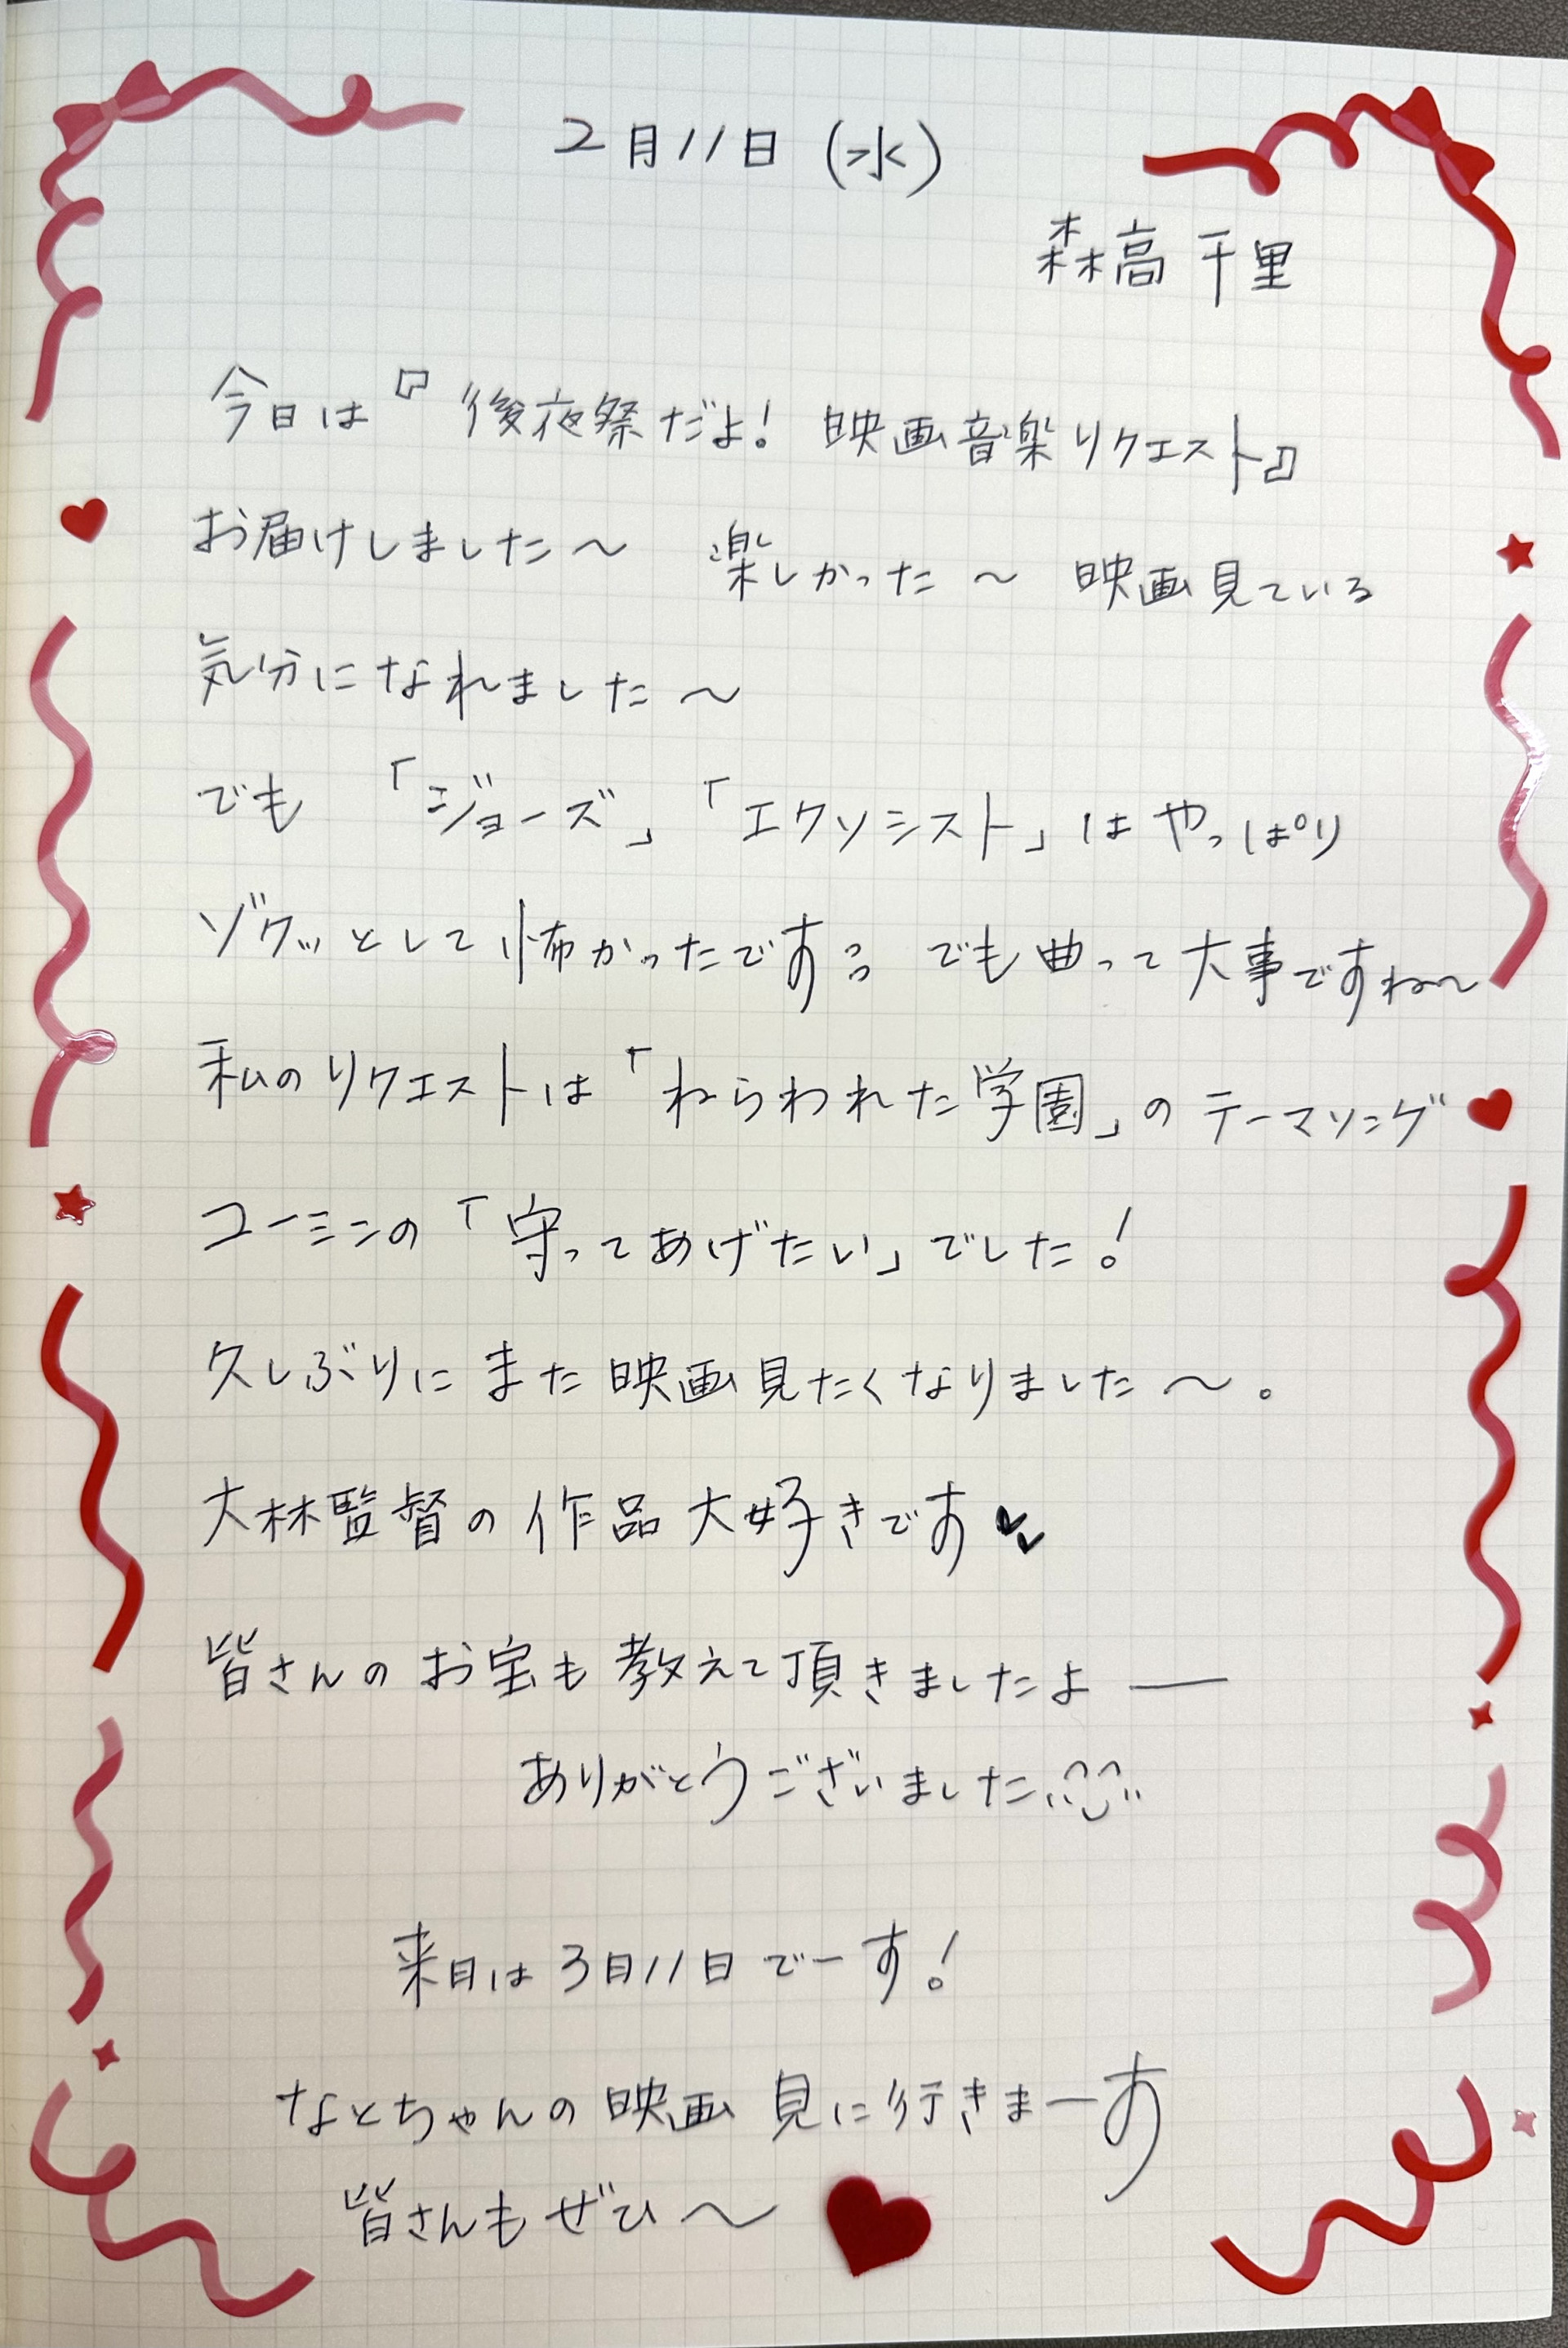 2月11日（水）
森高千里
今日は『後夜祭だよ！映画音楽リクエスト』
お届けしました〜 楽しかった〜 映画見ている
気分になれました〜
でも「ジョーズ」「エクソシスト」はやっぱり
ゾクッとして怖かったです でも曲って大事ですね〜
私のリクエストは「ねらわれた学園」のテーマソング
ユーミンの「守ってあげたい」でした！
久しぶりにまた映画見たくなりました〜。
大林監督の作品大好きです♥
皆さんのお宝も教えて頂きましたよー
ありがとうございました
来月は3月11日でーす！
なとちゃんの映画見に行きまーす
皆さんもぜひ〜